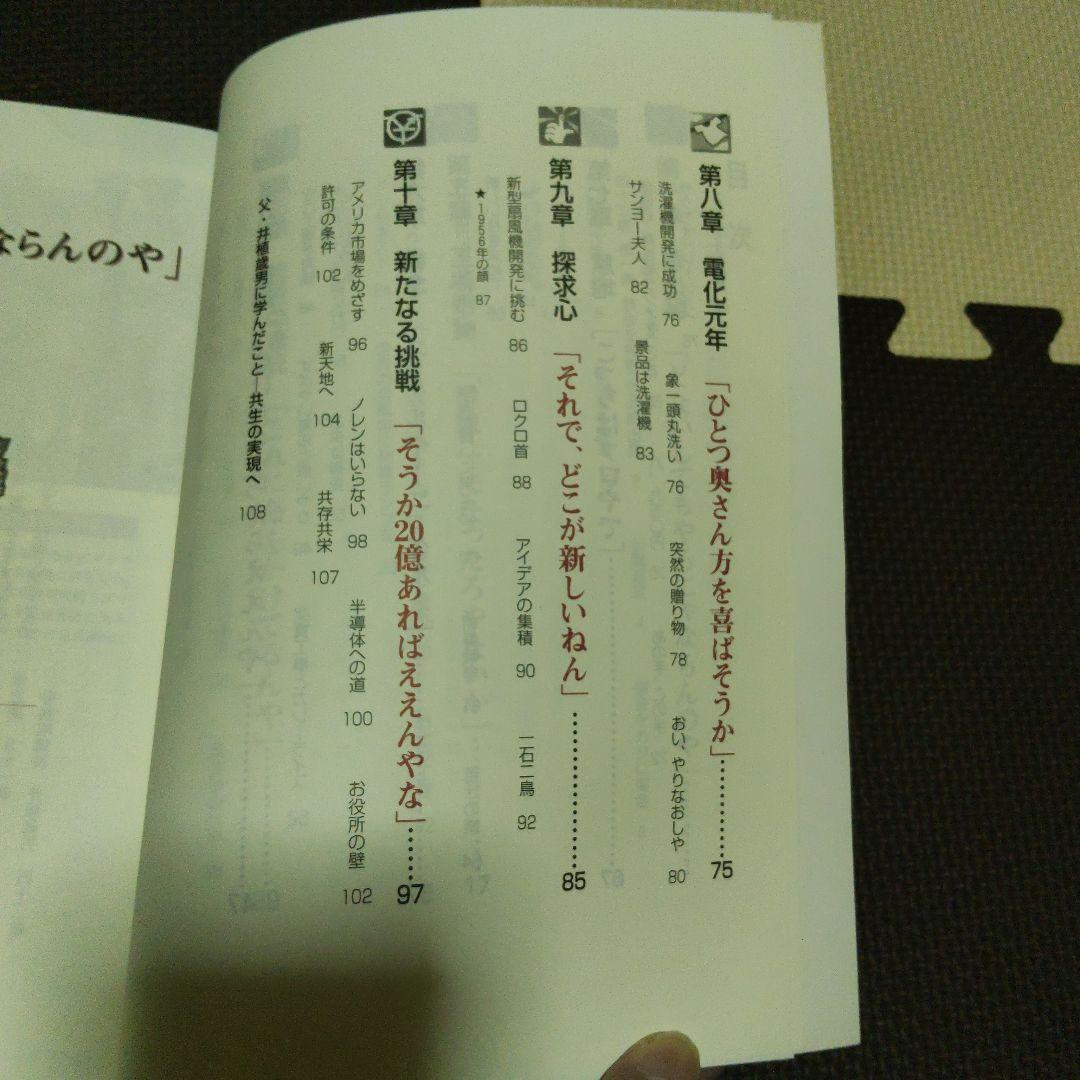 第八章 電化元年 「ひとつ奥さん方を喜ばそうか」…………75
洗濯機開発に成功 76 象一頭丸洗い 76 突然の贈り物 78 おい、やりなおしや 80
サンヨー夫人 82 景品は洗濯機 83
第九章 探求心 「それで、どこが新しいねん」………………85
新型扇風機開発に挑む 86 ロクロ首 88 アイデアの集積 90 一石二鳥 92
★1956年の顔 87
第十章 新たなる挑戦 「そうか20億あればええんやな」……97
アメリカ市場をめざす 96 ノレンはいらない 98 半導体への道 100 お役所の壁 102
許可の条件 102 新天地へ 104 共存共栄 107
父・井植歳男に学んだこと―共生の実現へ 108
ならんのや」